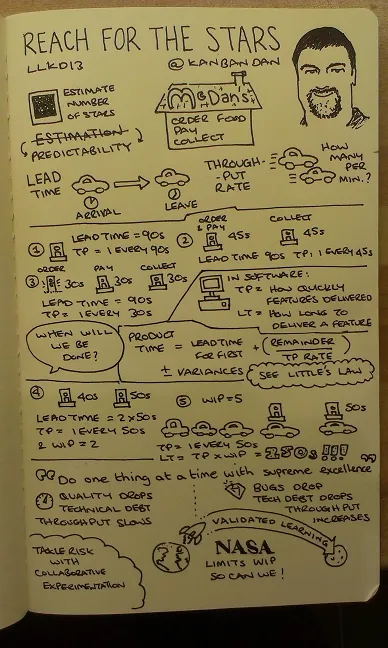 REACH FOR THE STARS
LLKD13
@KANBANDAN
ESTIMATE
NUMBER
OF STARS
McDan's
ORDER FOOD
PAY
COLLECT
ESTIMATION
PREDICTABILITY
LEAD
TIME
ARRIVAL
LEAVE
THROUGH-
-PUT
RATE
HOW
MANY
PER
MIN.?
① LEAD TIME = 90s
TP = 1 EVERY 90s
② ORDER & PAY 45s
COLLECT 45s
LEAD TIME 90s TP: 1 EVERY 45s
③ ORDER 30s PAY 30s COLLECT 30s
LEAD TIME = 90s
TP = 1 EVERY 30s
IN SOFTWARE:
TP = HOW QUICKLY
FEATURES DELIVERED
LT = HOW LONG TO
DELIVER A FEATURE
WHEN WILL
WE BE
DONE?
PRODUCT
TIME = LEADTIME FOR FIRST + (REMAINDER / TP RATE)
± VARIANCES
SEE LITTLE'S LAW
④ 40s 50s
LEADTIME = 2x50s
TP = 1 EVERY 50s
& WIP = 2
⑤ WIP=5
50s
TP = 1 EVERY 50s
LT = TP x WIP = 250s!!!
Do one thing at a time with supreme excellence
QUALITY DROPS
TECHNICAL DEBT
THROUGHPUT SLOWS
BUGS DROP
TECH DEBT DROPS
THROUGHPUT
INCREASES
VALIDATED LEARNING
TACKLE RISK
WITH
COLLABORATIVE
EXPERIMENTATION
NASA
LIMITS WIP
SO CAN WE!